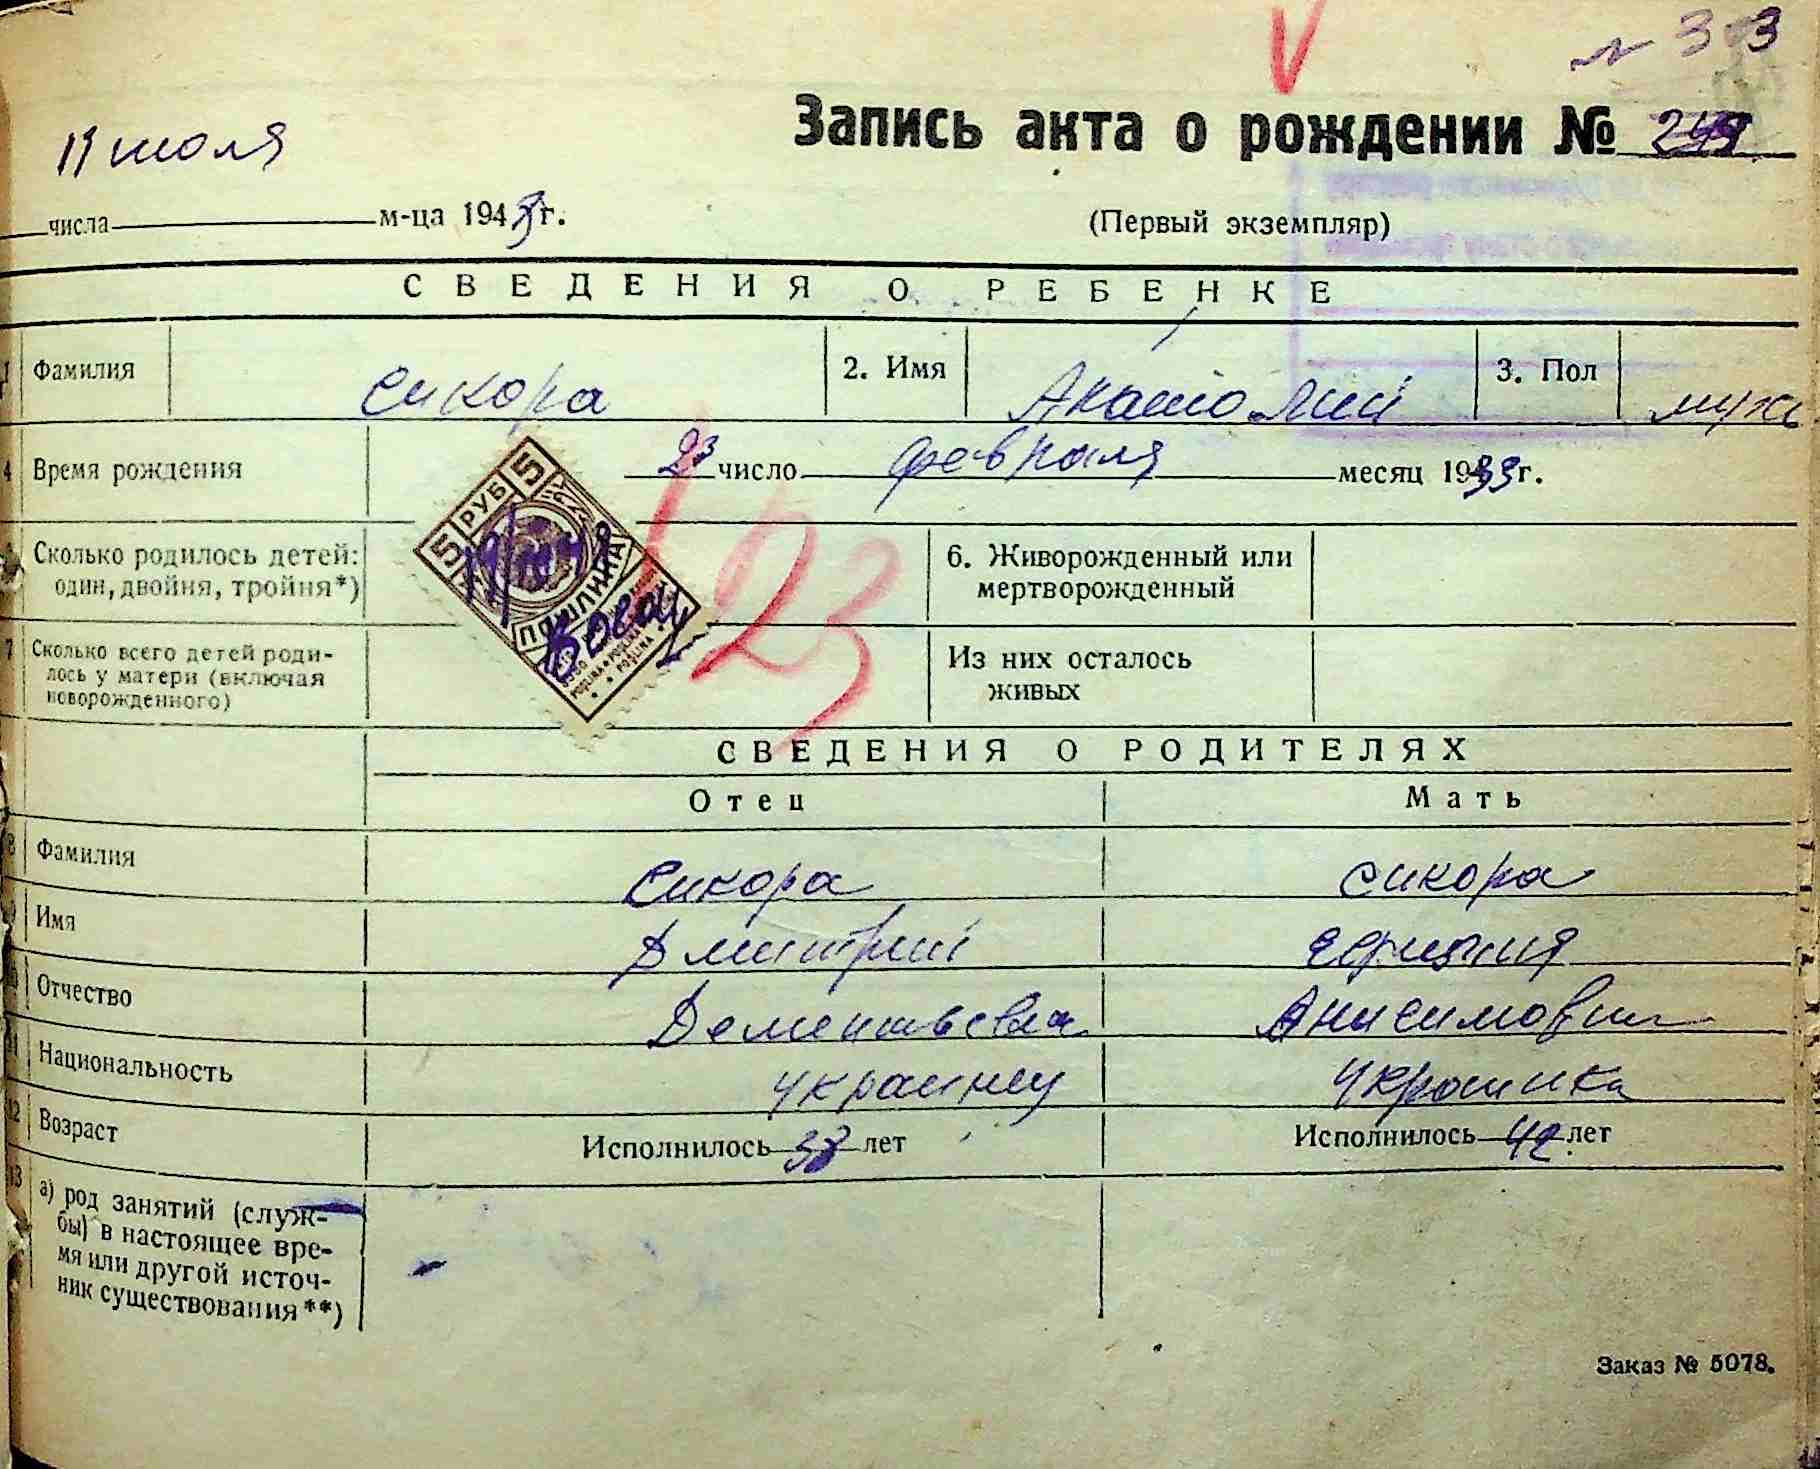 № 373
Запись акта о рождении №
19 июля
числа м-ца 194 г.
(Первый экземпляр)
СВЕДЕНИЯ О РЕБЕНКЕ
1 Фамилия Сикора 2. Имя Анатолий 3. Пол муж
4 Время рождения 23 число февраля месяц 1939 г.
Сколько родилось детей:
один, двойня, тройня*)
6. Живорожденный или
мертворожденный
5 РУБ 5
ПОШЛИНА
7 Сколько всего детей роди-
лось у матери (включая
новорожденного)
Из них осталось
живых
23
СВЕДЕНИЯ О РОДИТЕЛЯХ
Отец Мать
8 Фамилия Сикора Сикора
Имя Дмитрий
Отчество Дементьевич Анисимовна
Национальность украинец украинка
12 Возраст Исполнилось 38 лет Исполнилось 42 лет
13 а) род занятий (служ-
бы) в настоящее вре-
мя или другой источ-
ник существования**)
Заказ № 5078.